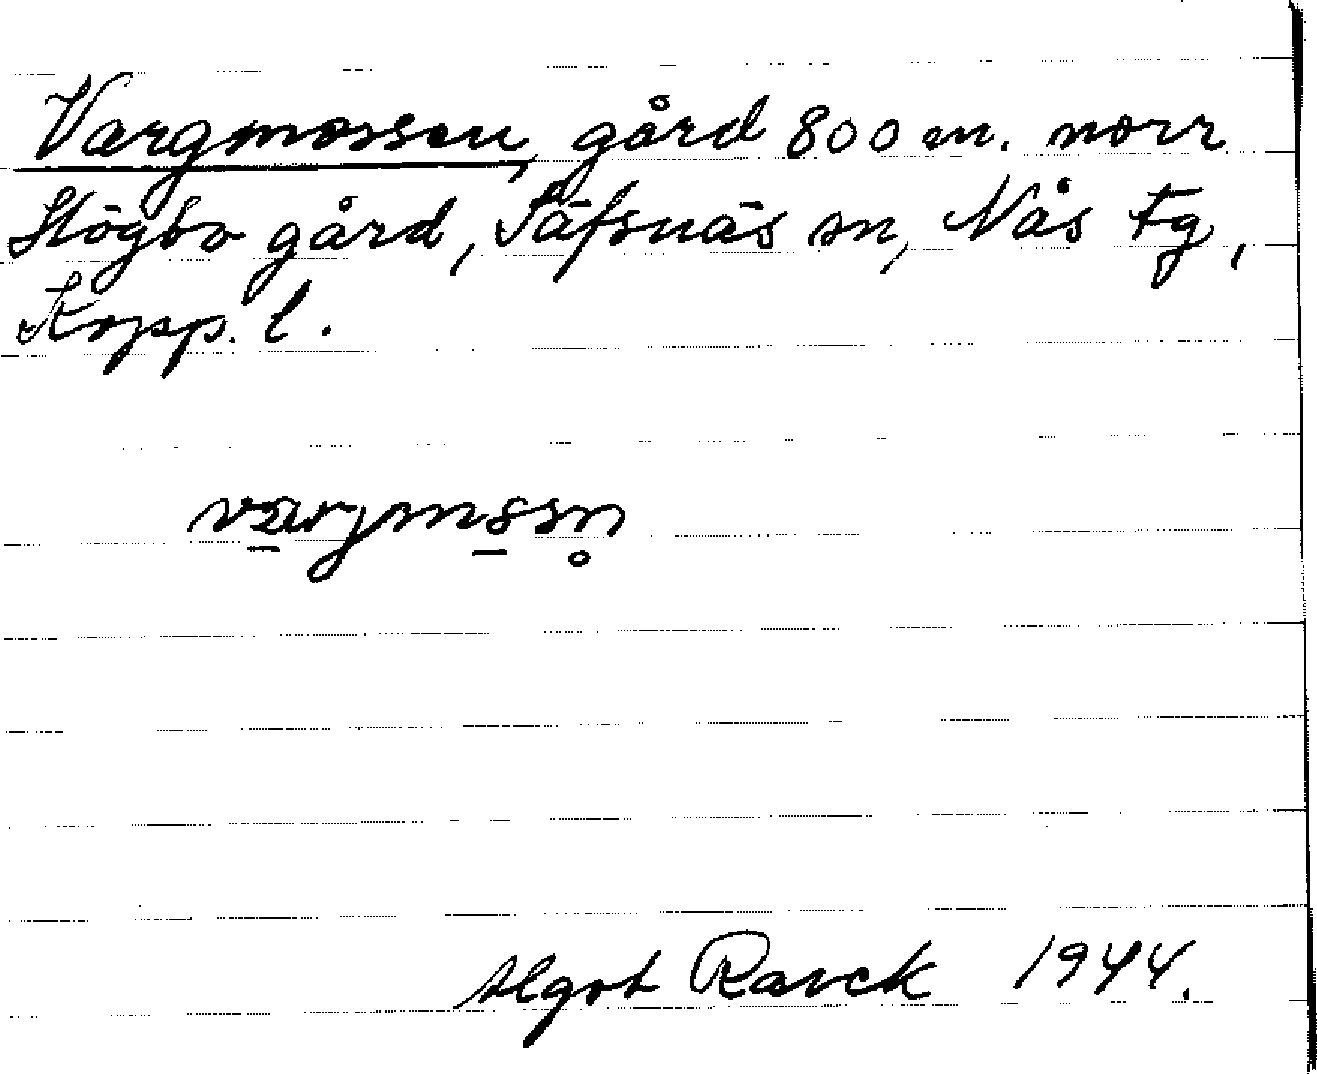 Vargmossen, gård 800 m. norr
Högbo gård, Säfsnäs sn, Nås Fg,
Kopp. l.
Algot Rarck 1944.